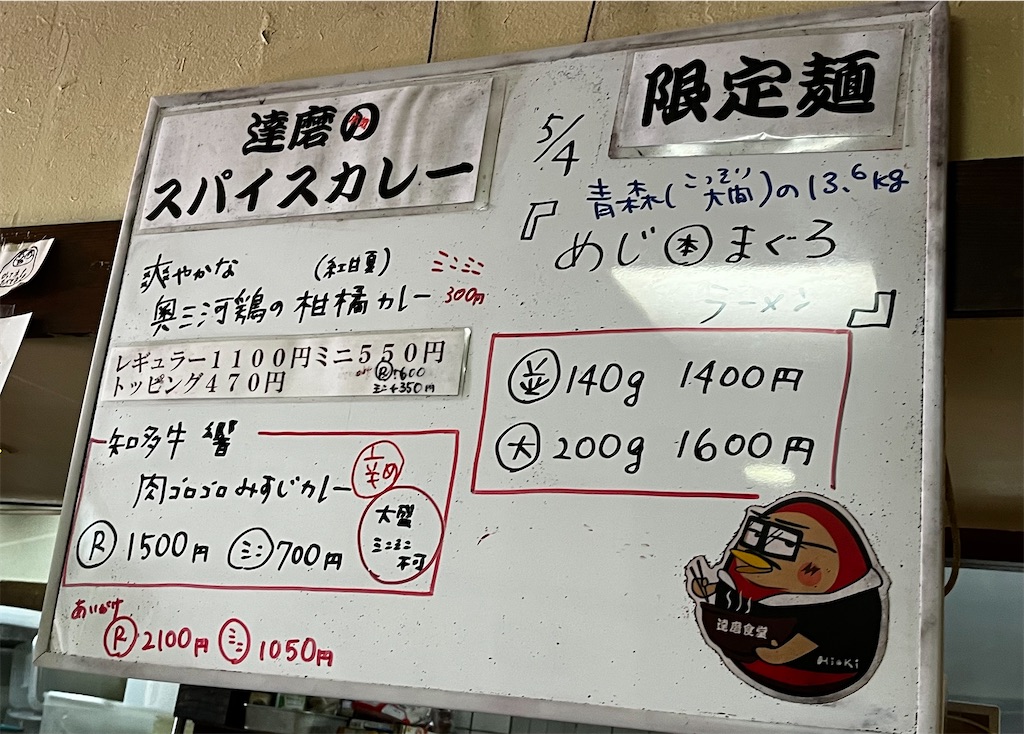 達磨の
スパイスカレー
爽やかな (紅甘夏) ミニミニ
奥三河鶏の柑橘カレー 300円
レギュラー1100円ミニ550円
トッピング470円 or Ⓡ+600
ミニ+350円
知多牛 響
肉ゴロゴロみすじカレー
辛め
大盛
ミニミニ
不可
Ⓡ 1500円 ミニ 700円
あいがけ
Ⓡ 2100円 ミニ 1050円
限定麺
5/4
青森(こっそり大間)の13.6kg
『めじ㊍まぐろ
ラーメン』
並 140g 1400円
大 200g 1600円
達磨食堂
HioKi